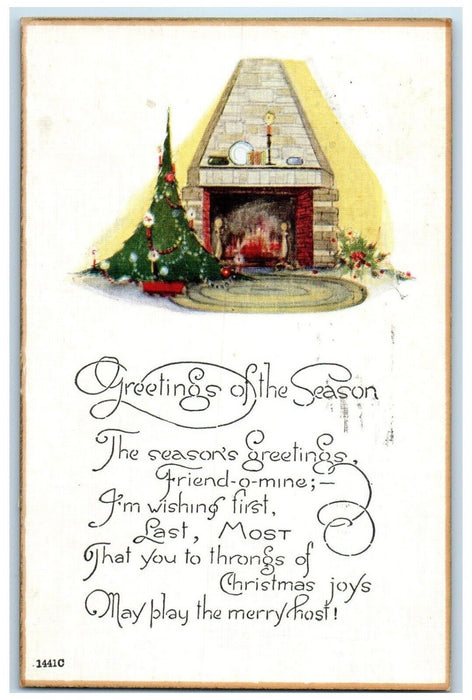 Greetings of the Season
The season's greetings,
Friend-o-mine;—
I'm wishing first,
Last, Most
That you to throngs of
Christmas joys
May play the merry host!
1441C